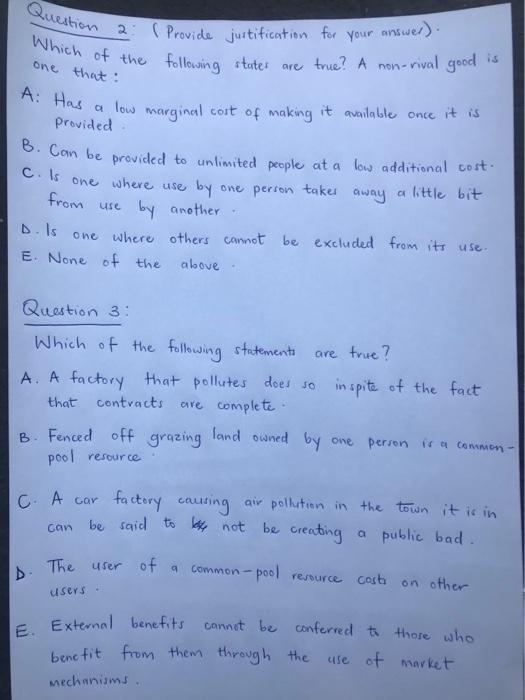 Question 2: (Provide justification for your answer).
Which of the following states are true? A non-rival good is
one that:
A: Has a low marginal cost of making it available once it is
provided.
B. Can be provided to unlimited people at a low additional cost.
C. Is one where use by one person takes away a little bit
from use by another.
D. Is one where others cannot be excluded from its use.
E. None of the above.
Question 3:
Which of the following statements are true?
A. A factory that pollutes does so inspite of the fact
that contracts are complete.
B. Fenced off grazing land owned by one person is a common-
pool resource
C. A car factory causing air pollution in the town it is in
can be said to not be creating a public bad.
D. The user of a common-pool resource costs on other
users.
E. External benefits cannot be conferred to those who
benefit from them through the use of market
mechanisms.